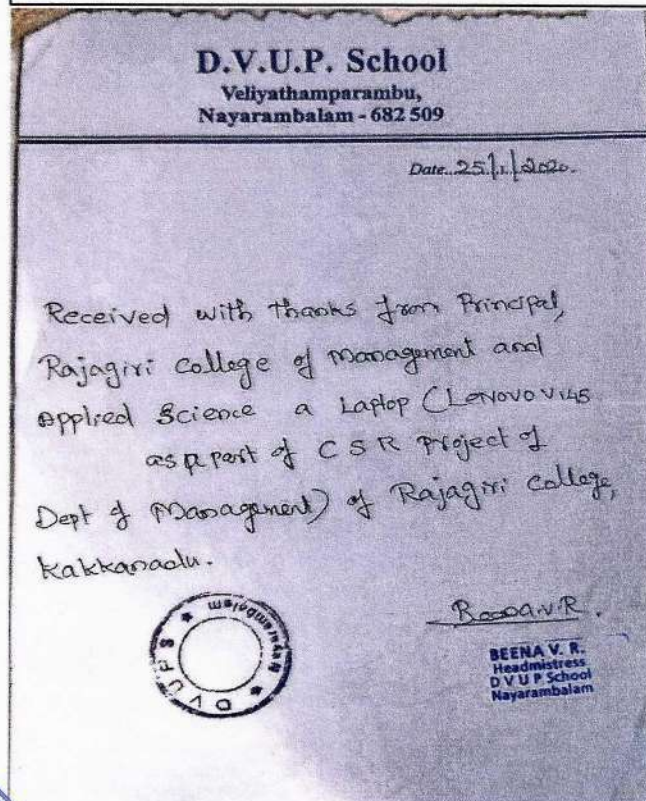 D.V.U.P. School
Veliyathamparambu,
Nayarambalam - 682 509
Date. 25/1/2020.
Received with thanks from Principal,
Rajagiri College of Management and
Applied Science a Laptop (Lenovo V145
as a part of CSR project of
Dept of Management) of Rajagiri College,
Kakkanadu.
D V U P S ★ Nayarambalam ★
Beena V.R.
BEENA V. R.
Headmistress
D V U P School
Nayarambalam